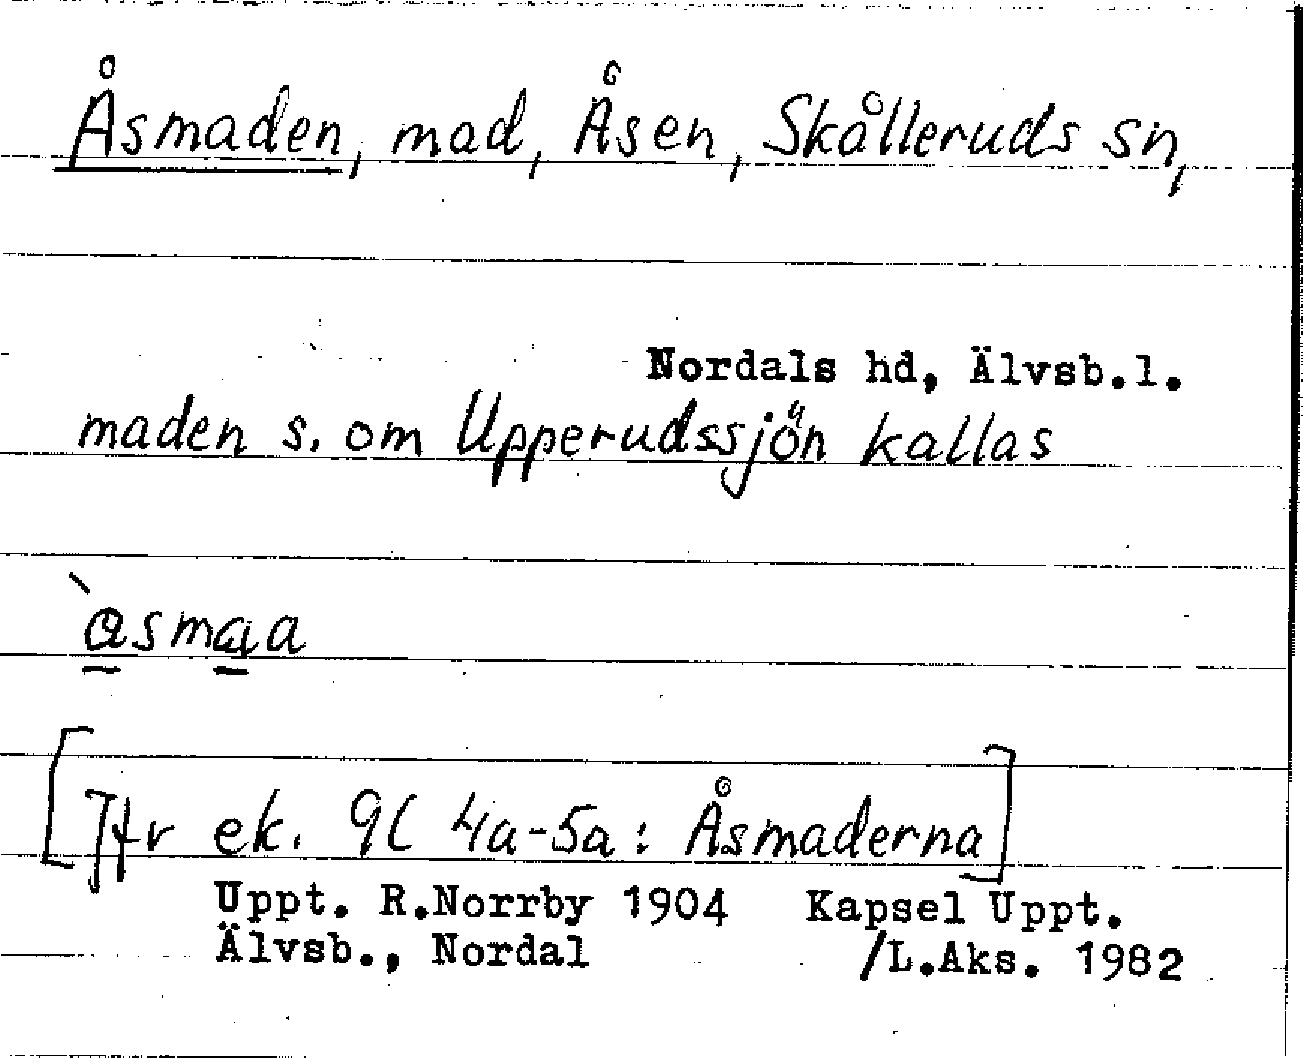 Åsmaden, mad, Åsen, Skålleruds sn,
Nordals hd, Älvsb.l.
maden s. om Upperudssjön kallas
àsmaa
[Jfr ek. 9C 4a-5a: Åsmaderna]
Uppt. R.Norrby 1904 Kapsel Uppt.
Älvsb., Nordal /L.Aks. 1982